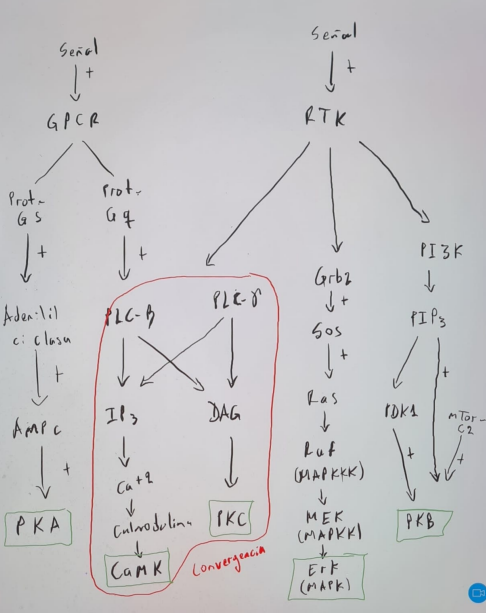 Señal
+
GPCR
Prot.
Gs
+
Adenilil
ciclasa
+
AMPc
+
PKA
Prot.
Gq
+
PLC-β
PLC-γ
IP3
DAG
Ca+2
Calmodulina
CaMK
PKC
Convergencia
Señal
+
RTK
Grb2
+
Sos
+
Ras
Raf
(MAPKKK)
MEK
(MAPKK)
Erk
(MAPK)
PI3K
PIP3
+
PDK1
+
mTor-
C2
+
PKB